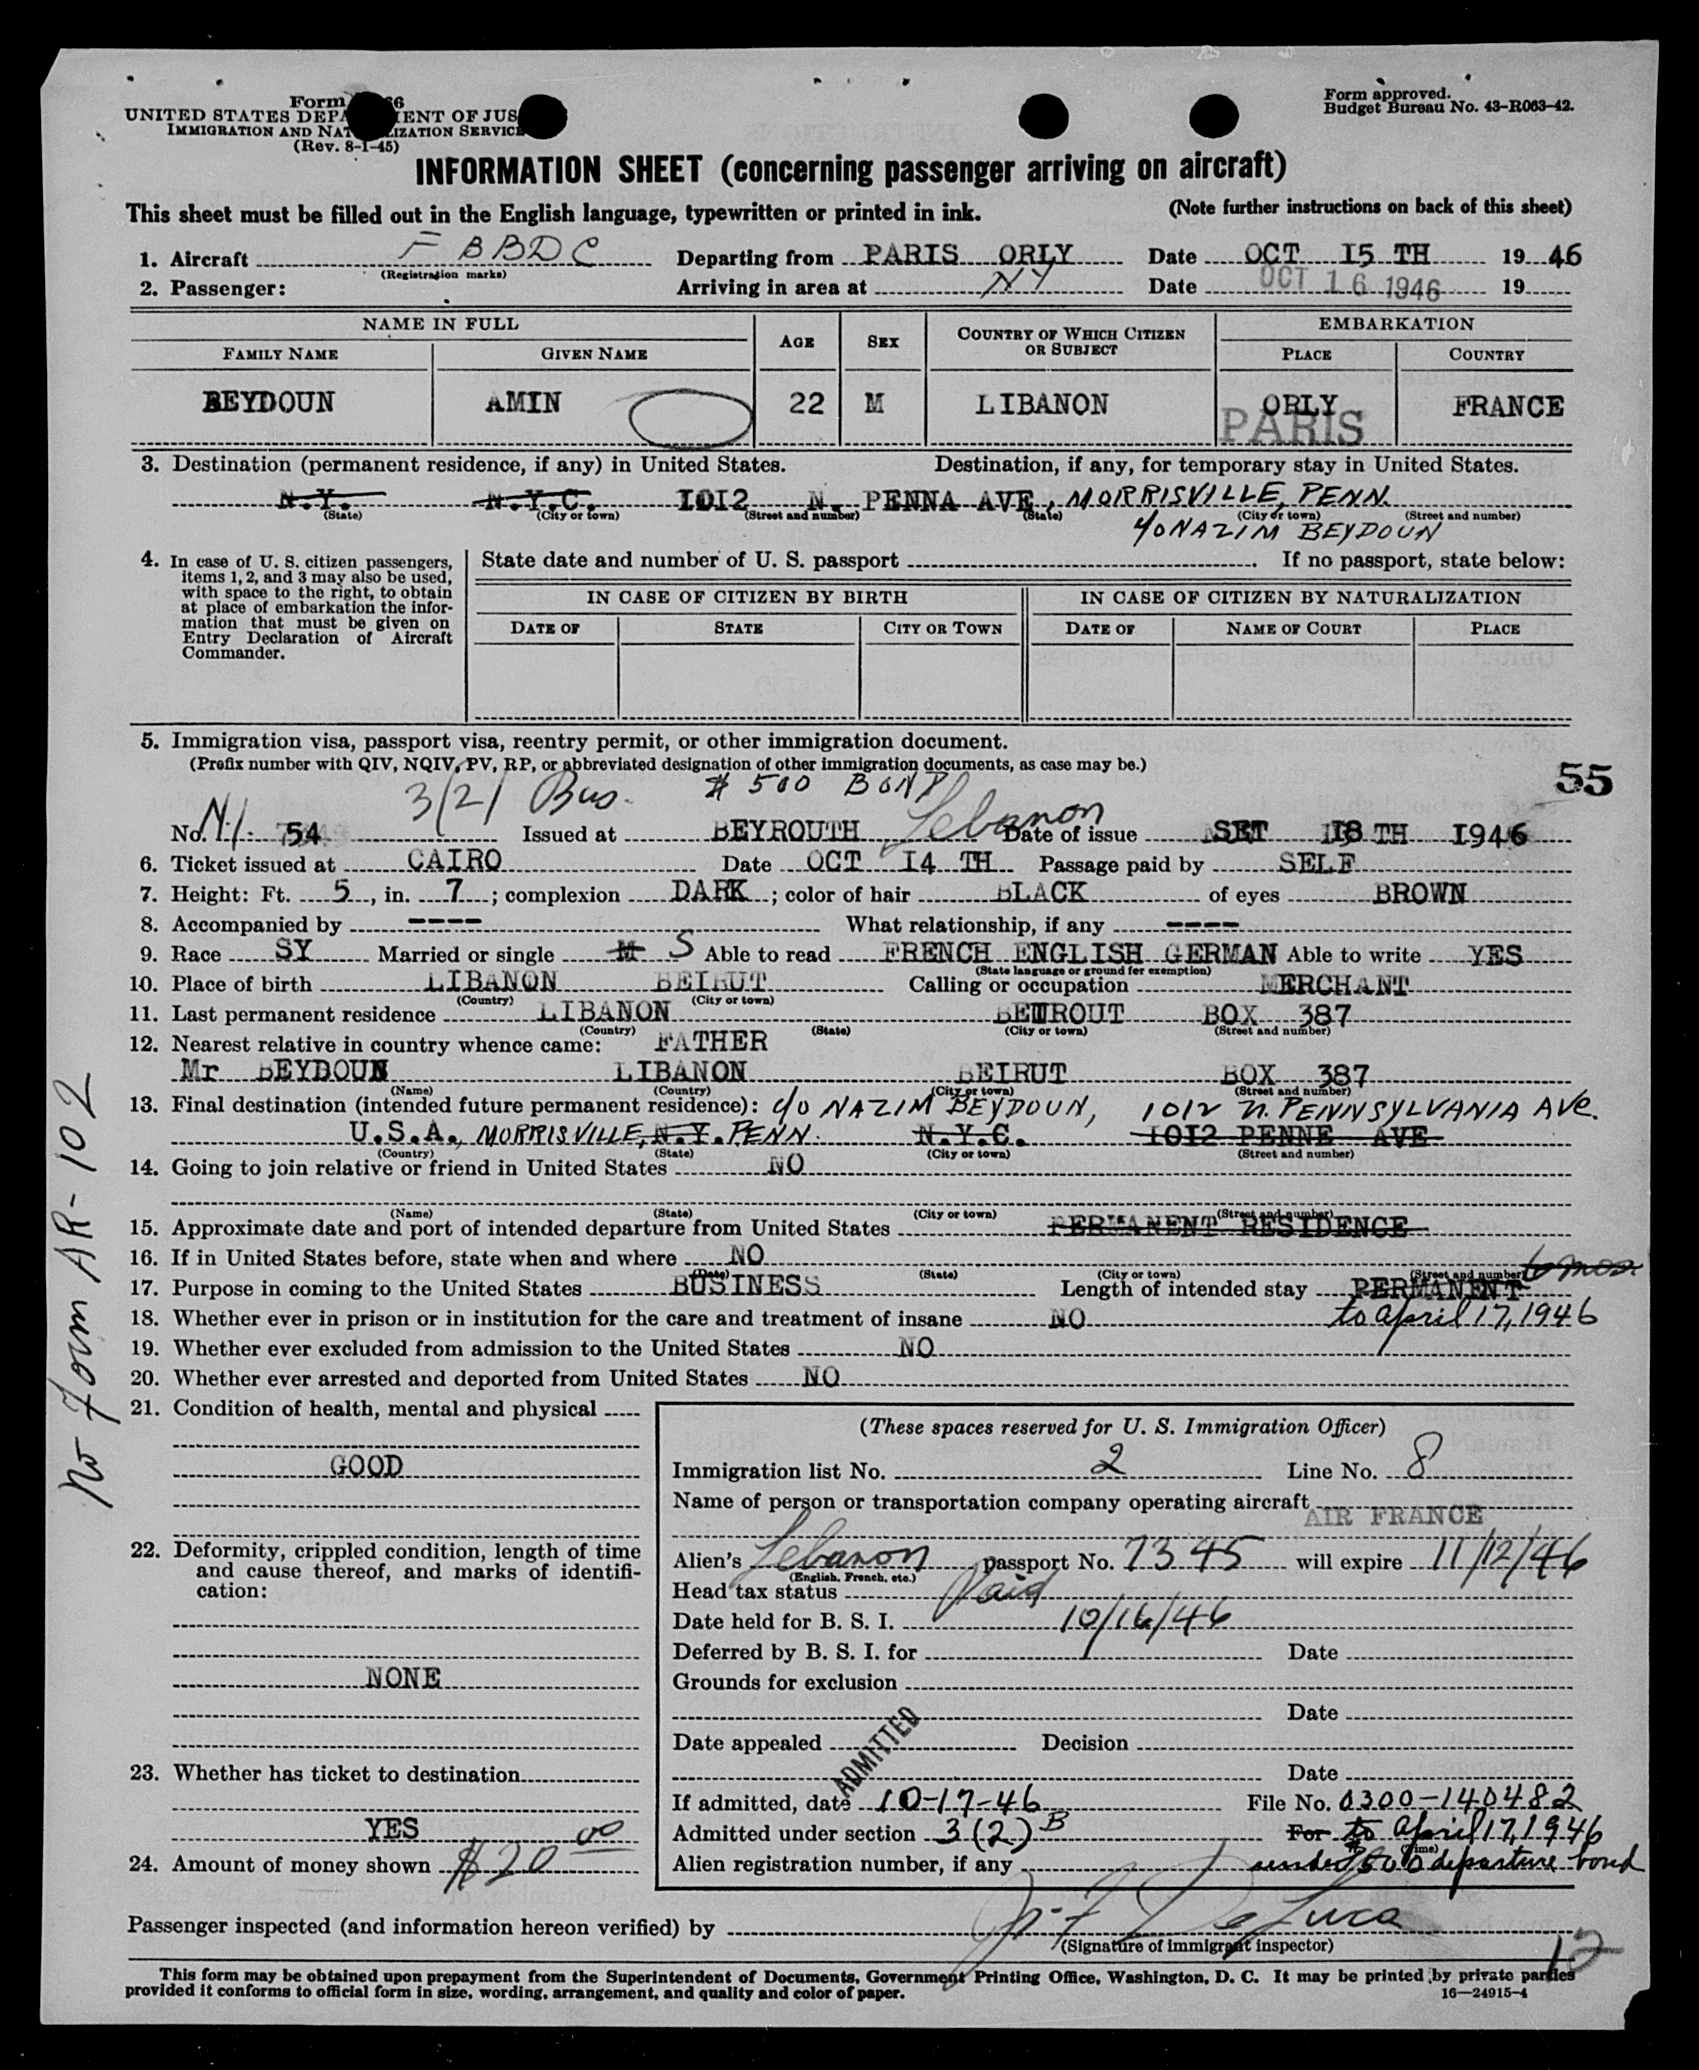 Form 66
UNITED STATES DEPA ENT OF JUS
IMMIGRATION AND NAT IZATION SERVICE
(Rev. 8-1-45)
Form approved.
Budget Bureau No. 43-R063-42.
INFORMATION SHEET (concerning passenger arriving on aircraft)
This sheet must be filled out in the English language, typewritten or printed in ink. (Note further instructions on back of this sheet)
1. Aircraft F BBDC Departing from PARIS ORLY Date OCT 15 TH 19 46
(Registration marks)
2. Passenger: Arriving in area at NY Date OCT 16 1946 19
NAME IN FULL AGE SEX COUNTRY OF WHICH CITIZEN OR SUBJECT EMBARKATION
FAMILY NAME GIVEN NAME PLACE COUNTRY
BEYDOUN AMIN 22 M LIBANON ORLY FRANCE
PARIS
3. Destination (permanent residence, if any) in United States. Destination, if any, for temporary stay in United States.
N.Y. N.Y.C. 1012 N. PENNA AVE, MORRISVILLE, PENN.
(State) (City or town) (Street and number) (State) (City or town) (Street and number)
c/o NAZIM BEYDOUN
4. In case of U. S. citizen passengers,
items 1, 2, and 3 may also be used,
with space to the right, to obtain
at place of embarkation the infor-
mation that must be given on
Entry Declaration of Aircraft
Commander.
State date and number of U. S. passport . If no passport, state below:
IN CASE OF CITIZEN BY BIRTH IN CASE OF CITIZEN BY NATURALIZATION
DATE OF STATE CITY OR TOWN DATE OF NAME OF COURT PLACE
5. Immigration visa, passport visa, reentry permit, or other immigration document.
(Prefix number with QIV, NQIV, PV, RP, or abbreviated designation of other immigration documents, as case may be.)
55
3/2/ Bus. $ 500 BOND
No. N.I. 54 Issued at BEYROUTH Lebanon Date of issue SET 18 TH 1946
6. Ticket issued at CAIRO Date OCT 14 TH Passage paid by SELF
7. Height: Ft. 5, in. 7; complexion DARK; color of hair BLACK of eyes BROWN
8. Accompanied by ---- What relationship, if any ----
9. Race SY Married or single M S Able to read FRENCH ENGLISH GERMAN Able to write YES
(State language or ground for exemption)
10. Place of birth LIBANON BEIRUT Calling or occupation MERCHANT
(Country) (City or town)
11. Last permanent residence LIBANON BEIROUT BOX 387
(Country) (State) (City or town) (Street and number)
12. Nearest relative in country whence came: FATHER
Mr BEYDOUN LIBANON BEIRUT BOX 387
(Name) (Country) (City or town) (Street and number)
13. Final destination (intended future permanent residence): c/o NAZIM BEYDOUN, 1012 N. PENNSYLVANIA AVE.
U.S.A., MORRISVILLE, N.Y. PENN. N.Y.C. 1012 PENNE AVE
(Country) (State) (City or town) (Street and number)
14. Going to join relative or friend in United States NO
(Name) (State) (City or town) (Street and number)
15. Approximate date and port of intended departure from United States PERMANENT RESIDENCE
16. If in United States before, state when and where NO
(Date) (State) (City or town) (Street and number)
17. Purpose in coming to the United States BUSINESS Length of intended stay PERMANENT 6 mos.
18. Whether ever in prison or in institution for the care and treatment of insane NO to april 17, 1946
19. Whether ever excluded from admission to the United States NO
20. Whether ever arrested and deported from United States NO
21. Condition of health, mental and physical
GOOD
22. Deformity, crippled condition, length of time
and cause thereof, and marks of identifi-
cation:
NONE
23. Whether has ticket to destination
YES
24. Amount of money shown $20 00
(These spaces reserved for U. S. Immigration Officer)
Immigration list No. 2 Line No. 8
Name of person or transportation company operating aircraft
AIR FRANCE
Alien's Lebanon passport No. 7345 will expire 11/12/46
(English, French, etc.)
Head tax status Paid
Date held for B. S. I. 10/16/46
Deferred by B. S. I. for Date
Grounds for exclusion
Date
Date appealed Decision
ADMITTED
Date
If admitted, date 10-17-46 File No. 0300-140482
Admitted under section 3(2) B For to april 17, 1946
(Time)
Alien registration number, if any under 500 departure bond
Passenger inspected (and information hereon verified) by J. F. DeLuca
(Signature of immigrant inspector)
12
This form may be obtained upon prepayment from the Superintendent of Documents, Government Printing Office, Washington, D. C. It may be printed by private parties
provided it conforms to official form in size, wording, arrangement, and quality and color of paper.
16—24915-4
No Form AR-102